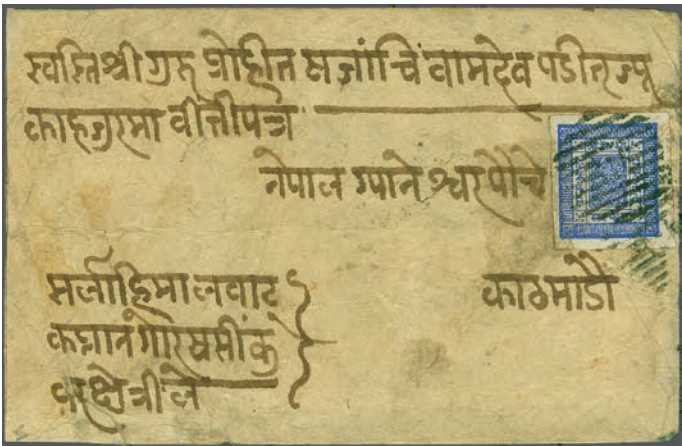 स्वस्तिश्री गुरू प्रोहीत षजांचि वामदेव पडीतज्यू
काहजुरमा वीत्तीपत्र
नेपाल ग्याने श्वर पौचे
सर्लाहिमालवाट
काठमाडौ
कप्तान गोरषसींकु
वर क्षेत्रीले